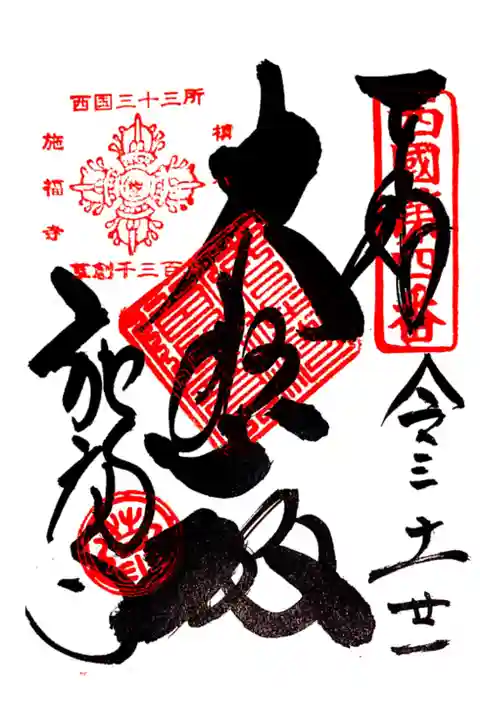 奉拝
西國第四番
令三 十一 廿一
大悲殿
施福寺
西国三十三所
槇
施福寺
草創千三百